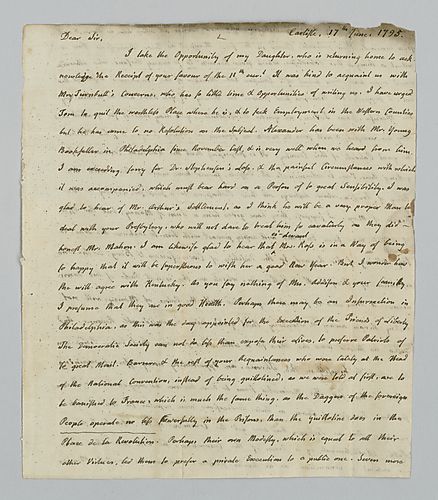 Carlisle, 17th June, 1795.
Dear Sir,
I take the Opportunity of my Daughter, who is returning home to ack
nowledge the Receipt of your favour of the 11th It was kind to acquaint us with
Mrs Turnbull's Concerns, who has so little time & Opportunities of writing us. I have urged
Tom to quit the worthless Place where he is, & to seek Employment in the Western Counties
but he has come to no Resolution on the Subject. Alexander has been with Mr Young
Bookseller in Philadelphia since November last, & is very well when we heard from him.
I am exceeding sorry for Dr. Stephenson's Loss, & the painful Circumstances with which
it was accompanied, which must bear hard on a Person of so great Sensibility. I was
glad to hear of Mr. Arthur's Settlement, as I think he will be a very proper Man to
deal with your Presbytery, who will not dare to treat him so cavalierly as they did
honest Mr. Mahon. I am likewise glad to hear that Mrs. Ross is in a Way of being
so happy that it will be superfluous to wish her a good New Year. But I wonder how
she will agree with Kentucky. As you say nothing of Mrs. Addison & your family,
I presume that they are in good Health. Perhaps there may be an Insurrection in
Philadelphia, as this was the day appointed for the Execution of the Friends of Liberty
The Democratic Society can not do less than expose their Lives, to preserve Patriots of
so great Merit. Barrere & the rest of your Acquaintances who were lately at the Head
of the National Convention, instead of being guillotined, as we were told at first, are to
be banished to France, which is much the same thing, as the Daggers of the Sovereign
People operate no less powerfully in the Prisons, than the Guillotine does in the
Place de la Revolution. Perhaps their own Modesty, which is equal to all their
other Virtues, led them to prefer a private Execution to a public one. Seven more